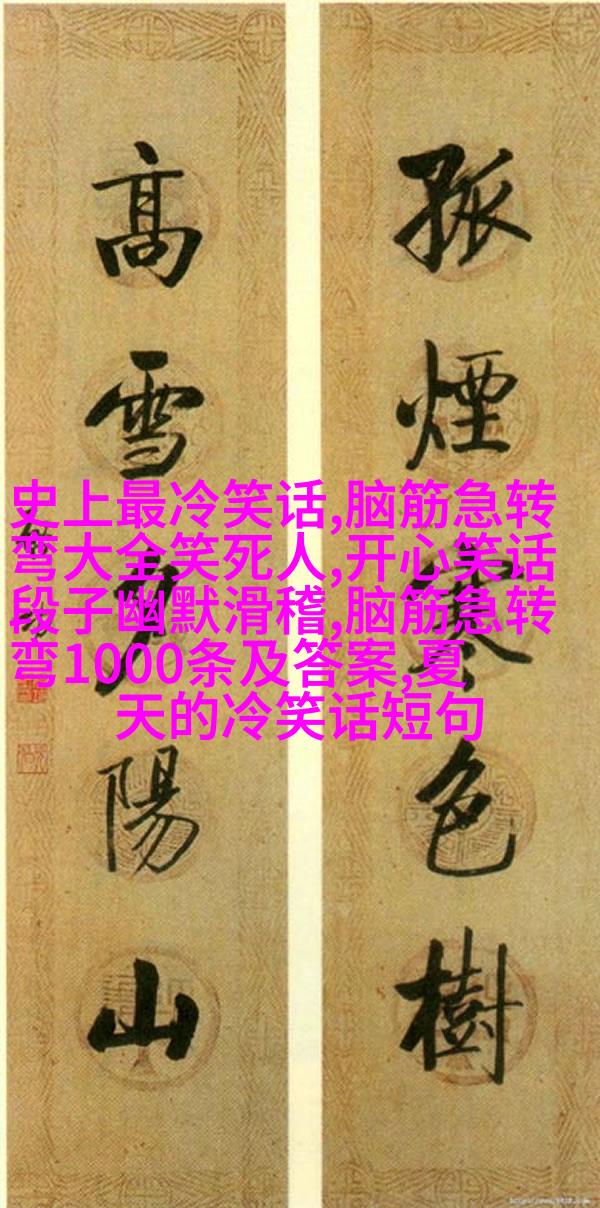 孤煙寒色樹
高雪夕陽山
史上最冷笑话,脑筋急转
弯大全笑死人,开心笑话
段子幽默滑稽,脑筋急转
弯1000条及答案,夏
天的冷笑话短句